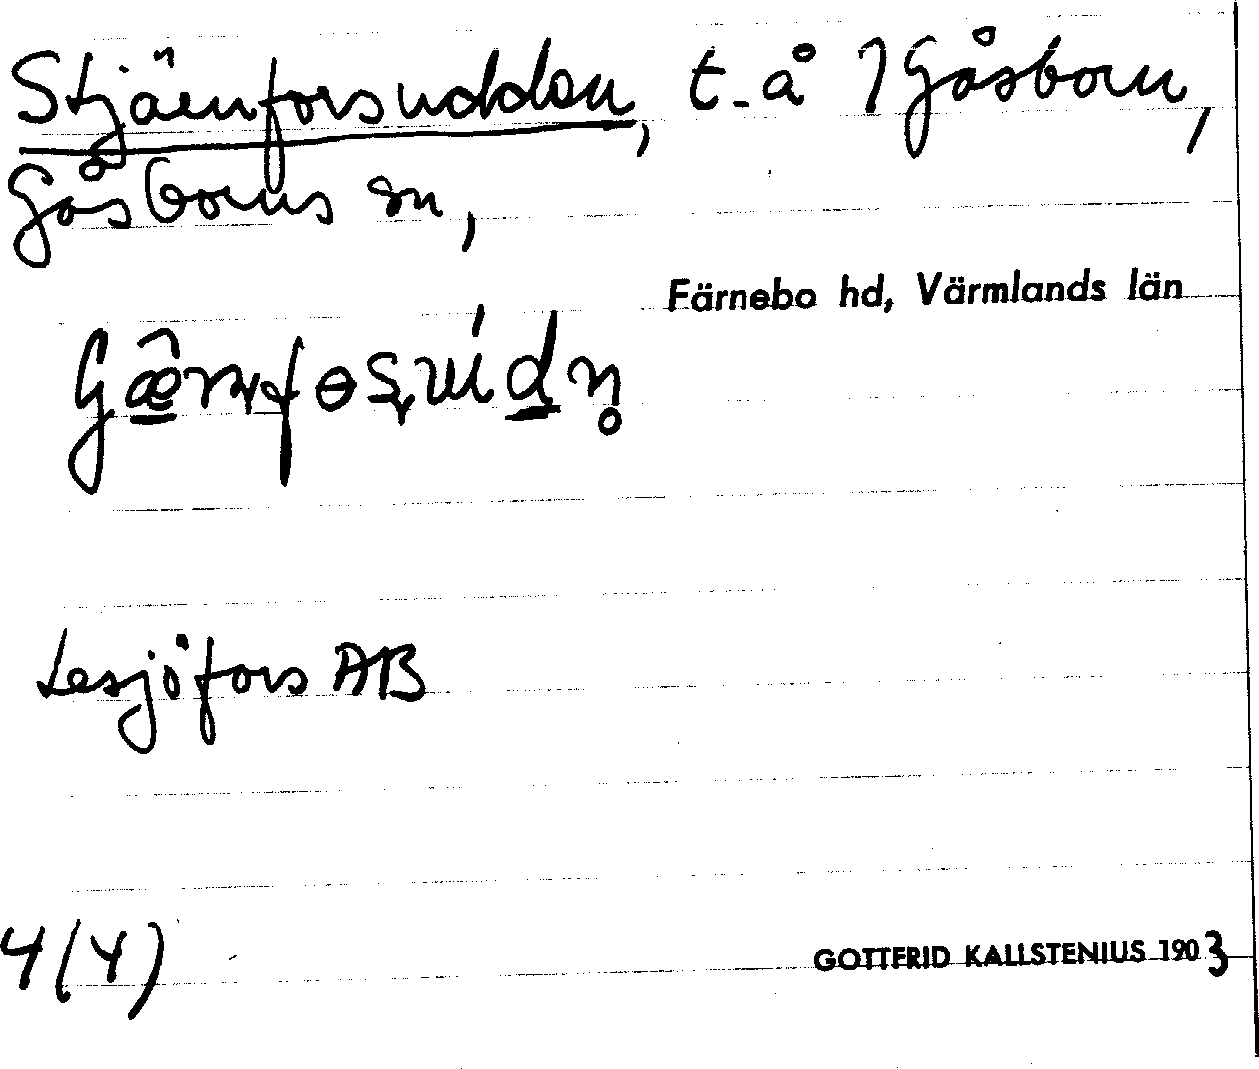 Stjärnforsudden, t. å 7 Gåsborn,
Gåsborns sn,
Färnebo hd, Värmlands län
Lesjöfors AB
4 (4)
GOTTFRID KALLSTENIUS 1903